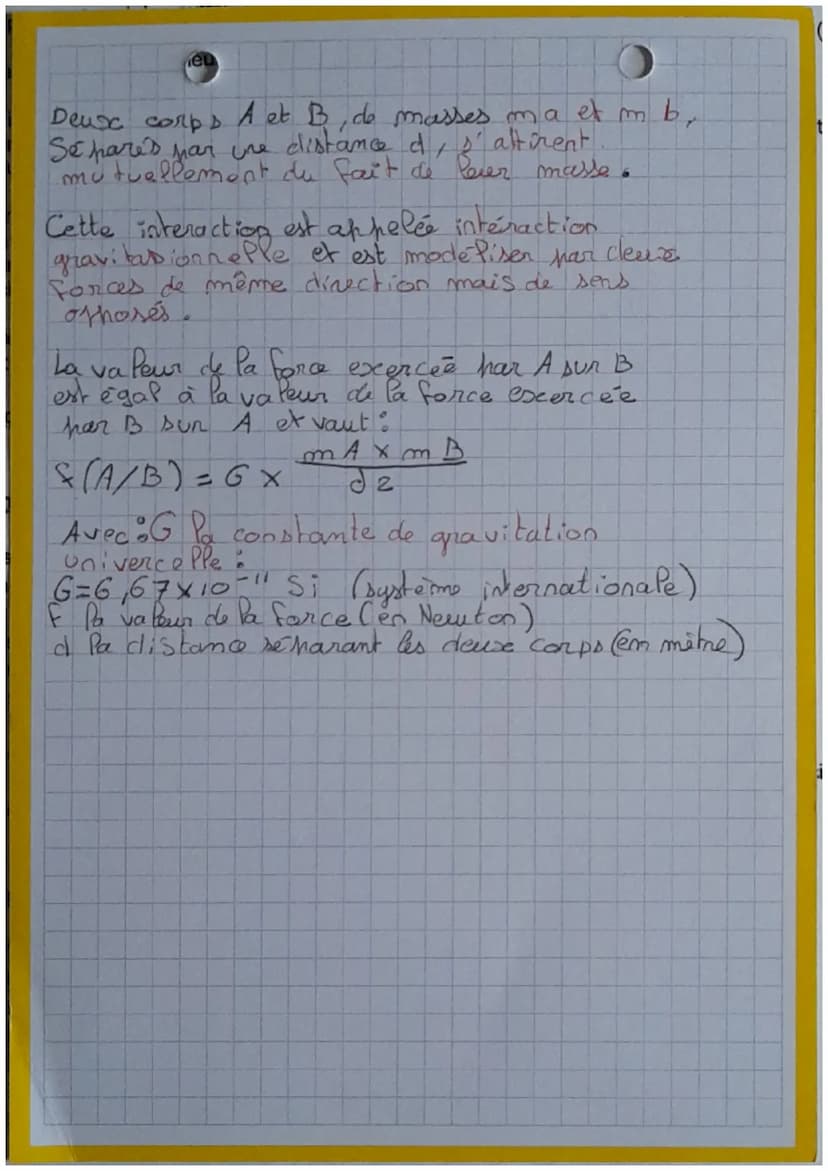 ieu
Deux corps A et B, de masses m a et m b,
Séparés par une distance d, s'attirent
mutuellement du fait de leur masse.
Cette interaction est appelée intéraction
gravitationnelle et est modéliser par deux
forces de même direction mais de sens
opposés.
La valeur de la force exercée par A sur B
est égal à la valeur de la force exercée
par B sur A et vaut :
f(A/B) = G × mA × mB / d2
Avec : G la constante de gravitation
univercelle :
G=6,67×10⁻¹¹ Si (système internationale)
F la valeur de la force (en Newton)
d la distance séparant les deux corps (em mètre)